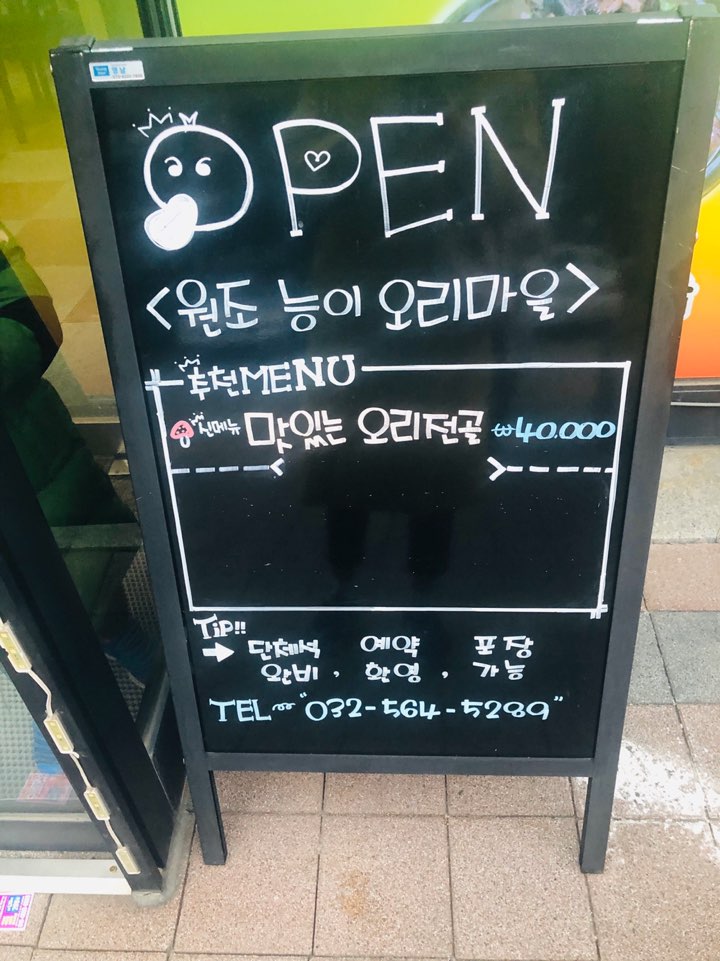 OPEN
<원조 능이 오리마을>
추천MENU
신메뉴 맛있는 오리전골 ₩40.000
TiP!!
→ 단체석 완비, 예약 환영, 포장 가능
TEL "032-564-5289"